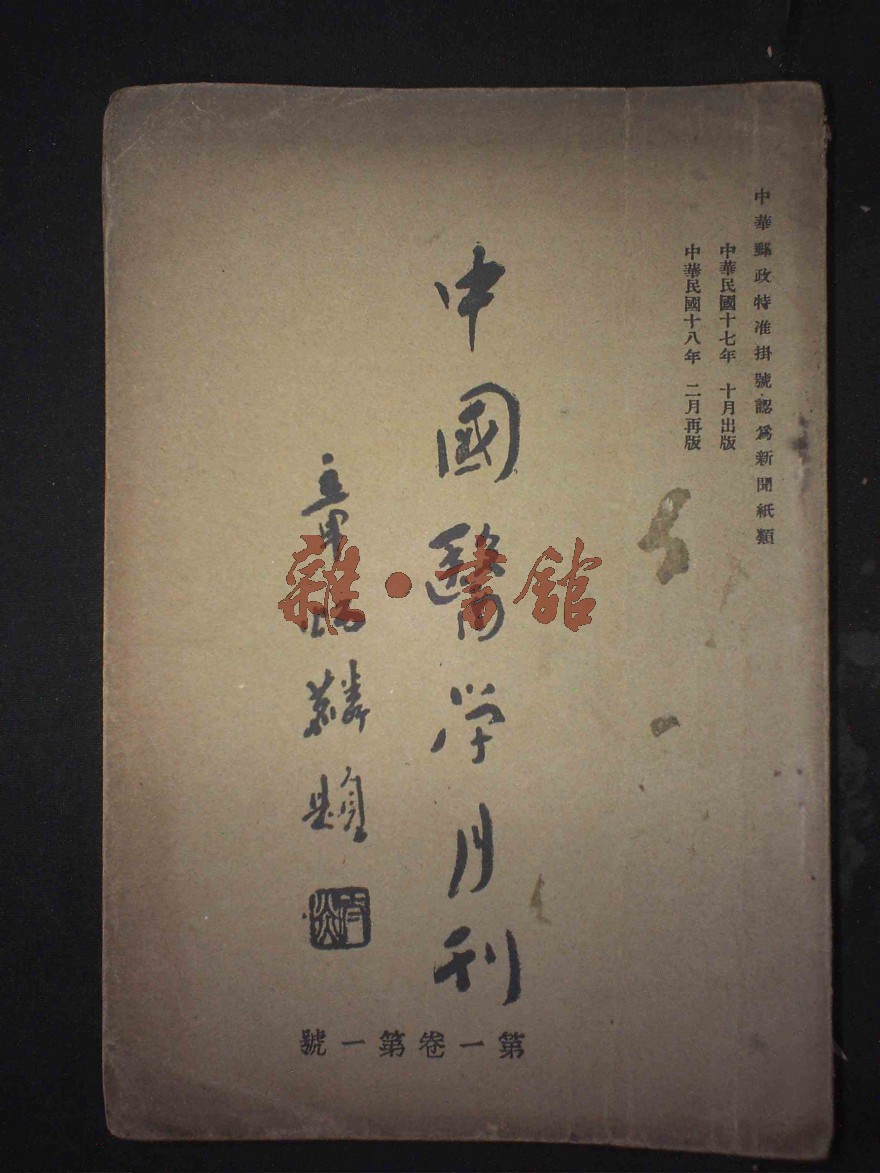 中華郵政特准掛號認爲新聞紙類
中華民國十七年 十月出版
中華民國十八年 二月再版
中國醫學月刊
章炳麟題
第一卷第一號
雜·書館